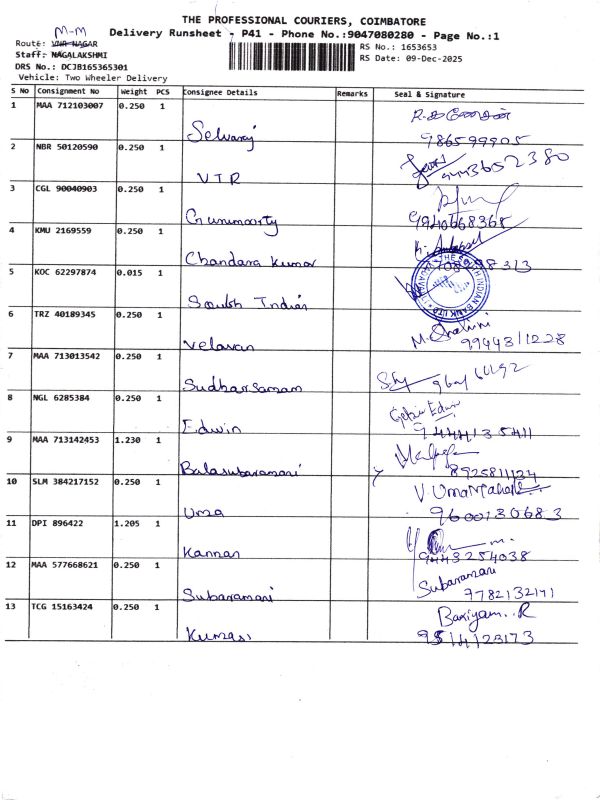 THE PROFESSIONAL COURIERS, COIMBATORE
Delivery Runsheet - P41 - Phone No.:9047080280 - Page No.:1
M-M
Route: VNR NAGAR
RS No.: 1653653
Staff: NAGALAKSHMI
RS Date: 09-Dec-2025
DRS No.: DCJB165365301
Vehicle: Two Wheeler Delivery
S No Consignment No Weight PCS Consignee Details Remarks Seal & Signature
1 MAA 712103007 0.250 1
Selvaraj 986599905
2 NBR 50120590 0.250 1
VTR 9443652380
3 CGL 90040903 0.250 1
Gunamoorty 9940668368
4 KMU 2169559 0.250 1
Chandara Kumar
5 KOC 62297874 0.015 1
South Indian
THE SOUTH INDIAN BANK LTD
6 TRZ 40189345 0.250 1
Velavan M. Shalini 9944311228
7 MAA 713013542 0.250 1
Sudharsanam
8 NGL 6285384 0.250 1
Edwin 9444135411
9 MAA 713142453 1.230 1
Balasubaramani 8925811124
10 SLM 384217152 0.250 1
Uma V. UmaMahe 9600130683
11 DPI 896422 1.205 1
Kannan 9443254038
12 MAA 577668621 0.250 1
Subaramani Subaramani 7782132171
13 TCG 15163424 0.250 1
Kumar Baxiyam.. R 9514123173